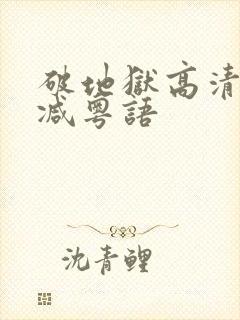 破地獄高清
減粵語
沈青鯉